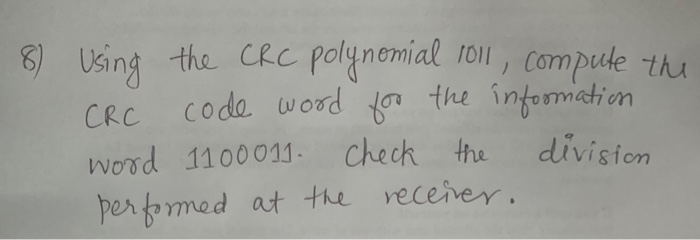 8) Using the CRC polynomial 1011, compute the
CRC code word for the information
word 1100011. Check the division
performed at the receiver.